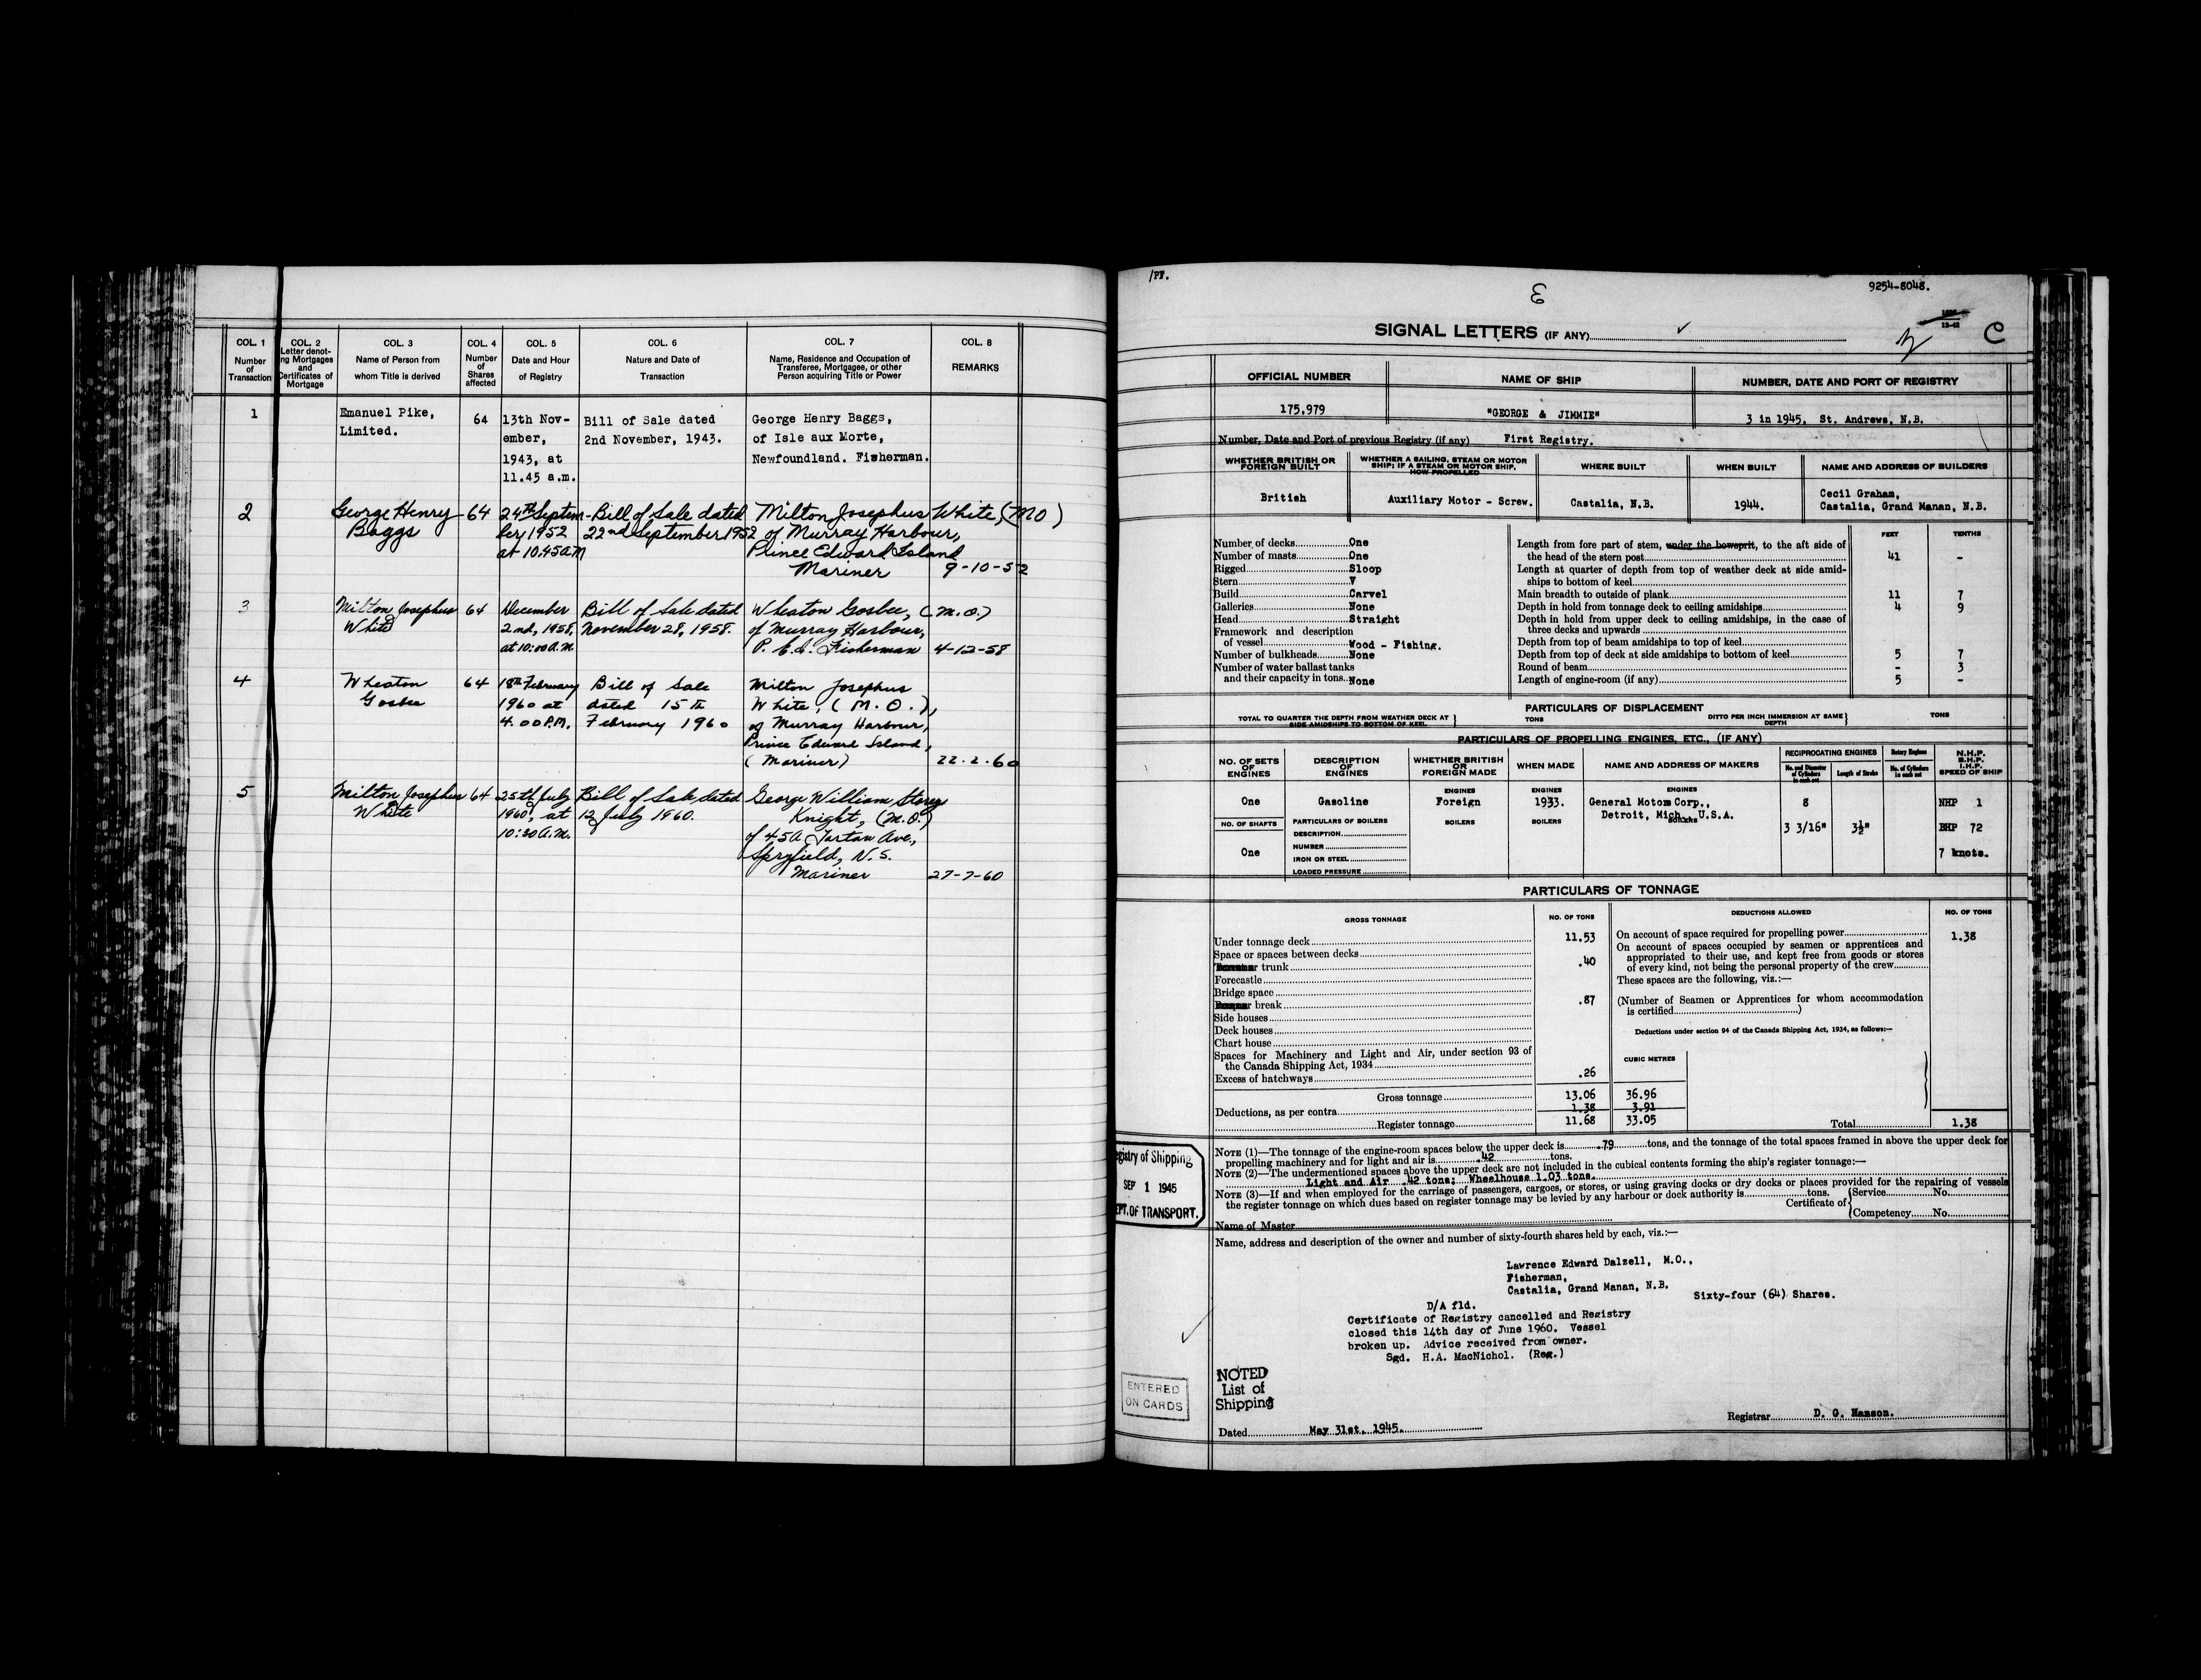 COL. 1
Number
of
Transaction
COL. 2
Letter denot-
ing Mortgages
and
Certificates of
Mortgage
COL. 3
Name of Person from
whom Title is derived
COL. 4
Number
of
Shares
affected
COL. 5
Date and Hour
of Registry
COL. 6
Nature and Date of
Transaction
COL. 7
Name, Residence and Occupation of
Transferee, Mortgagee, or other
Person acquiring Title or Power
COL. 8
REMARKS
1
Emanuel Pike,
Limited.
64
13th Nov-
ember,
1943, at
11.45 a.m.
Bill of Sale dated
2nd November, 1943.
George Henry Baggs,
of Isle aux Morte,
Newfoundland. Fisherman.
2
George Henry
Baggs
64
24th Septem-
ber, 1952
at 10.45 A.M
Bill of Sale dated
22nd September 1952
Milton Josephus White, (MO)
of Murray Harbour,
Prince Edward Island
Mariner
9-10-52
3
Milton Josephus
White
64
December
2nd, 1958,
at 10:00 A.M.
Bill of Sale dated
November 28, 1958.
Wheaton Gosbee, (M.O.)
of Murray Harbour,
P. E. I. Fisherman
4-12-58
4
Wheaton
Gosbee
64
18th February
1960 at
4.00 P.M.
Bill of Sale
dated 15th
February 1960
Milton Josephus
White, (M.O.),
of Murray Harbour,
Prince Edward Island,
(Mariner)
22.2.60
5
Milton Josephus
White
64
25th July
1960, at
10:30 A.M.
Bill of Sale dated
12 July 1960.
George William Storey
Knight, (M.O.)
of 45A Tartan Ave.,
Spryfield, N.S.
Mariner
27-7-60
/PT.
9254-8048.
SIGNAL LETTERS (IF ANY)
C
OFFICIAL NUMBER
NAME OF SHIP
NUMBER, DATE AND PORT OF REGISTRY
175,979
"GEORGE & JIMMIE"
3 in 1945, St. Andrews, N.B.
Number, Date and Port of previous Registry (if any) First Registry.
WHETHER BRITISH OR
FOREIGN BUILT
WHETHER A SAILING, STEAM OR MOTOR
SHIP; IF A STEAM OR MOTOR SHIP,
HOW PROPELLED
WHERE BUILT
WHEN BUILT
NAME AND ADDRESS OF BUILDERS
British
Auxiliary Motor - Screw.
Castalia, N.B.
1944.
Cecil Graham,
Castalia, Grand Manan, N.B.
Number of decks One
Number of masts One
Rigged Sloop
Stern V
Build Carvel
Galleries None
Head Straight
Framework and description
of vessel Wood - Fishing.
Number of bulkheads None
Number of water ballast tanks
and their capacity in tons None
FEET
TENTHS
Length from fore part of stem, under the bowsprit, to the aft side of
the head of the stern post 41 -
Length at quarter of depth from top of weather deck at side amid-
ships to bottom of keel
Main breadth to outside of plank 11 7
Depth in hold from tonnage deck to ceiling amidships 4 9
Depth in hold from upper deck to ceiling amidships, in the case of
three decks and upwards
Depth from top of beam amidships to top of keel
Depth from top of deck at side amidships to bottom of keel 5 7
Round of beam - 3
Length of engine-room (if any) 5 -
PARTICULARS OF DISPLACEMENT
TOTAL TO QUARTER THE DEPTH FROM WEATHER DECK AT
SIDE AMIDSHIPS TO BOTTOM OF KEEL
TONS
DITTO PER INCH IMMERSION AT SAME
DEPTH
TONS
PARTICULARS OF PROPELLING ENGINES, ETC., (IF ANY)
NO. OF SETS
OF
ENGINES
DESCRIPTION
OF
ENGINES
WHETHER BRITISH
OR
FOREIGN MADE
WHEN MADE
NAME AND ADDRESS OF MAKERS
RECIPROCATING ENGINES
No. and Diameter
of Cylinders
in each set
Length of Stroke
Rotary Engines
No. of Cylinders
in each set
N.H.P.
B.H.P.
I.H.P.
SPEED OF SHIP
ENGINES
ENGINES
ENGINES
One
Gasoline
Foreign
1933.
General Motors Corp.,
Detroit, Mich., U.S.A.
8
3 3/16"
3½"
NHP 1
BHP 72
7 knots.
NO. OF SHAFTS
One
PARTICULARS OF BOILERS
DESCRIPTION
NUMBER
IRON OR STEEL
LOADED PRESSURE
BOILERS
BOILERS
BOILERS
PARTICULARS OF TONNAGE
GROSS TONNAGE
NO. OF TONS
DEDUCTIONS ALLOWED
NO. OF TONS
Under tonnage deck 11.53
Space or spaces between decks
trunk .40
Forecastle
Bridge space
break .87
Side houses
Deck houses
Chart house
Spaces for Machinery and Light and Air, under section 93 of
the Canada Shipping Act, 1934
Excess of hatchways .26
Gross tonnage 13.06 36.96
Deductions, as per contra 1.38 3.91
Register tonnage 11.68 33.05
On account of space required for propelling power 1.38
On account of spaces occupied by seamen or apprentices and
appropriated to their use, and kept free from goods or stores
of every kind, not being the personal property of the crew
These spaces are the following, viz.:—
(Number of Seamen or Apprentices for whom accommodation
is certified)
Deductions under section 94 of the Canada Shipping Act, 1934, as follows:—
CUBIC METRES
Total 1.38
NOTE (1)—The tonnage of the engine-room spaces below the upper deck is .79 tons, and the tonnage of the total spaces framed in above the upper deck for
propelling machinery and for light and air is .42 tons.
NOTE (2)—The undermentioned spaces above the upper deck are not included in the cubical contents forming the ship's register tonnage:—
Light and Air .42 tons; Wheelhouse 1.03 tons.
NOTE (3)—If and when employed for the carriage of passengers, cargoes, or stores, or using graving docks or dry docks or places provided for the repairing of vessels
the register tonnage on which dues based on register tonnage may be levied by any harbour or dock authority is tons.
Certificate of
Service No.
Competency No.
Name of Master
egistry of Shipping
SEP 1 1945
EPT. OF TRANSPORT.
Name, address and description of the owner and number of sixty-fourth shares held by each, viz.:—
Lawrence Edward Dalzell, M.O.,
Fisherman,
Castalia, Grand Manan, N.B.
Sixty-four (64) Shares.
D/A fld.
Certificate of Registry cancelled and Registry
closed this 14th day of June 1960. Vessel
broken up. Advice received from owner.
Sgd. H.A. MacNichol. (Reg.)
NOTED
List of
Shipping
ENTERED
ON CARDS
Dated May 31st, 1945.
Registrar D. G. Hanson.